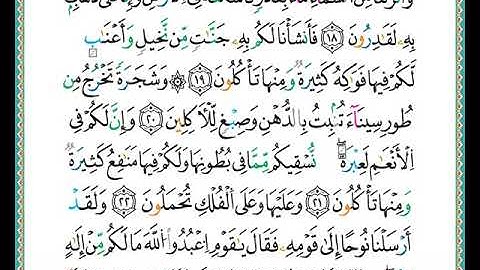 بِهِۦ لَقَٰدِرُونَ ﴿١٨﴾ فَأَنشَأْنَا لَكُم بِهِۦ جَنَّٰتٍ مِّن نَّخِيلٍ وَأَعْنَٰبٍ
لَّكُمْ فِيهَا فَوَٰكِهُ كَثِيرَةٌ وَمِنْهَا تَأْكُلُونَ ﴿١٩﴾ ۞ وَشَجَرَةً تَخْرُجُ مِن
طُورِ سَيْنَآءَ تَنۢبُتُ بِٱلدُّهْنِ وَصِبْغٍ لِّلْـَٔاكِلِينَ ﴿٢٠﴾ وَإِنَّ لَكُمْ فِى
ٱلْأَنْعَٰمِ لَعِبْرَةً نُّسْقِيكُم مِّمَّا فِى بُطُونِهَا وَلَكُمْ فِيهَا مَنَٰفِعُ كَثِيرَةٌ
وَمِنْهَا تَأْكُلُونَ ﴿٢١﴾ وَعَلَيْهَا وَعَلَى ٱلْفُلْكِ تُحْمَلُونَ ﴿٢٢﴾ وَلَقَدْ
أَرْسَلْنَا نُوحًا إِلَىٰ قَوْمِهِۦ فَقَالَ يَٰقَوْمِ ٱعْبُدُوا۟ ٱللَّهَ مَا لَكُم مِّنْ إِلَٰهٍ